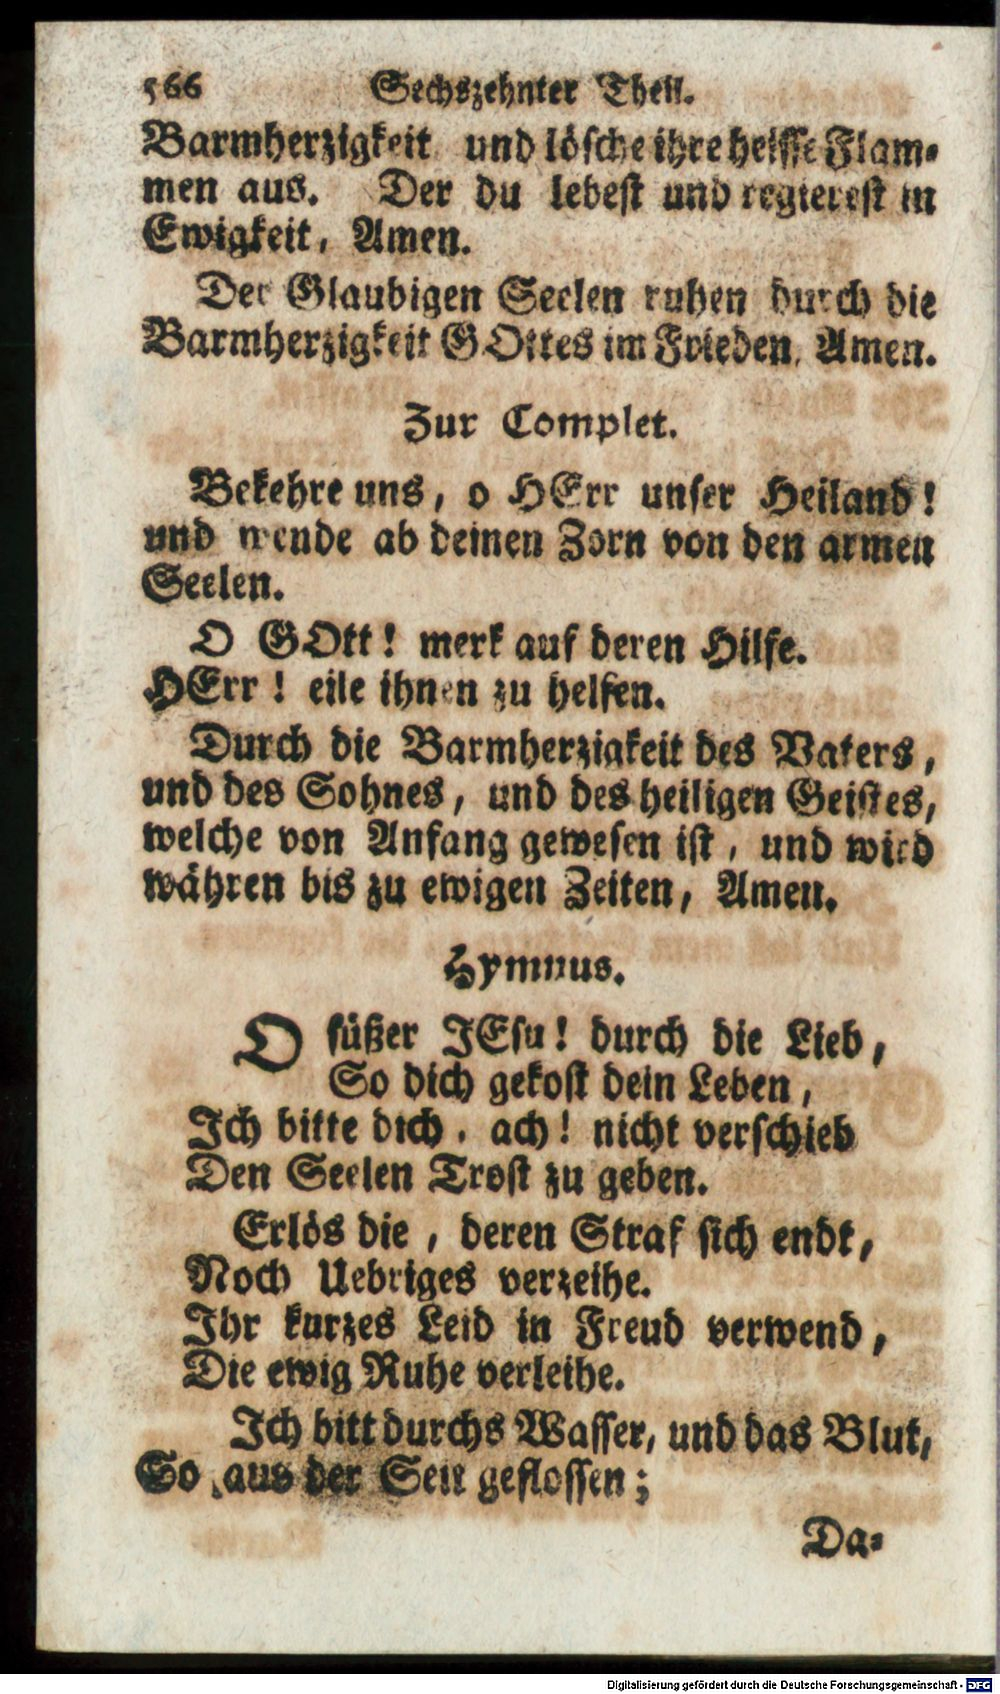 566 Sechszehnter Theil.
Barmherzigkeit und lösche ihre heisse Flam-
men aus. Der du lebest und regierest in
Ewigkeit, Amen.
Der Glaubigen Seelen ruhen durch die
Barmherzigkeit GOttes im Frieden, Amen.
Zur Complet.
Bekehre uns, o HErr unser Heiland!
und wende ab deinen Zorn von den armen
Seelen.
O GOtt! merk auf deren Hilfe.
HErr! eile ihnen zu helfen.
Durch die Barmherzigkeit des Vaters,
und des Sohnes, und des heiligen Geistes,
welche von Anfang gewesen ist, und wird
währen bis zu ewigen Zeiten, Amen.
Hymnus.
O süßer JEsu! durch die Lieb,
So dich gekost dein Leben,
Ich bitte dich, ach! nicht verschieb
Den Seelen Trost zu geben.
Erlös die, deren Straf sich endt,
Noch Uebriges verzeihe.
Ihr kurzes Leid in Freud verwend,
Die ewig Ruhe verleihe.
Ich bitt durchs Wasser, und das Blut,
So aus der Seit geflossen;
Da-
Digitalisierung gefördert durch die Deutsche Forschungsgemeinschaft - DFG